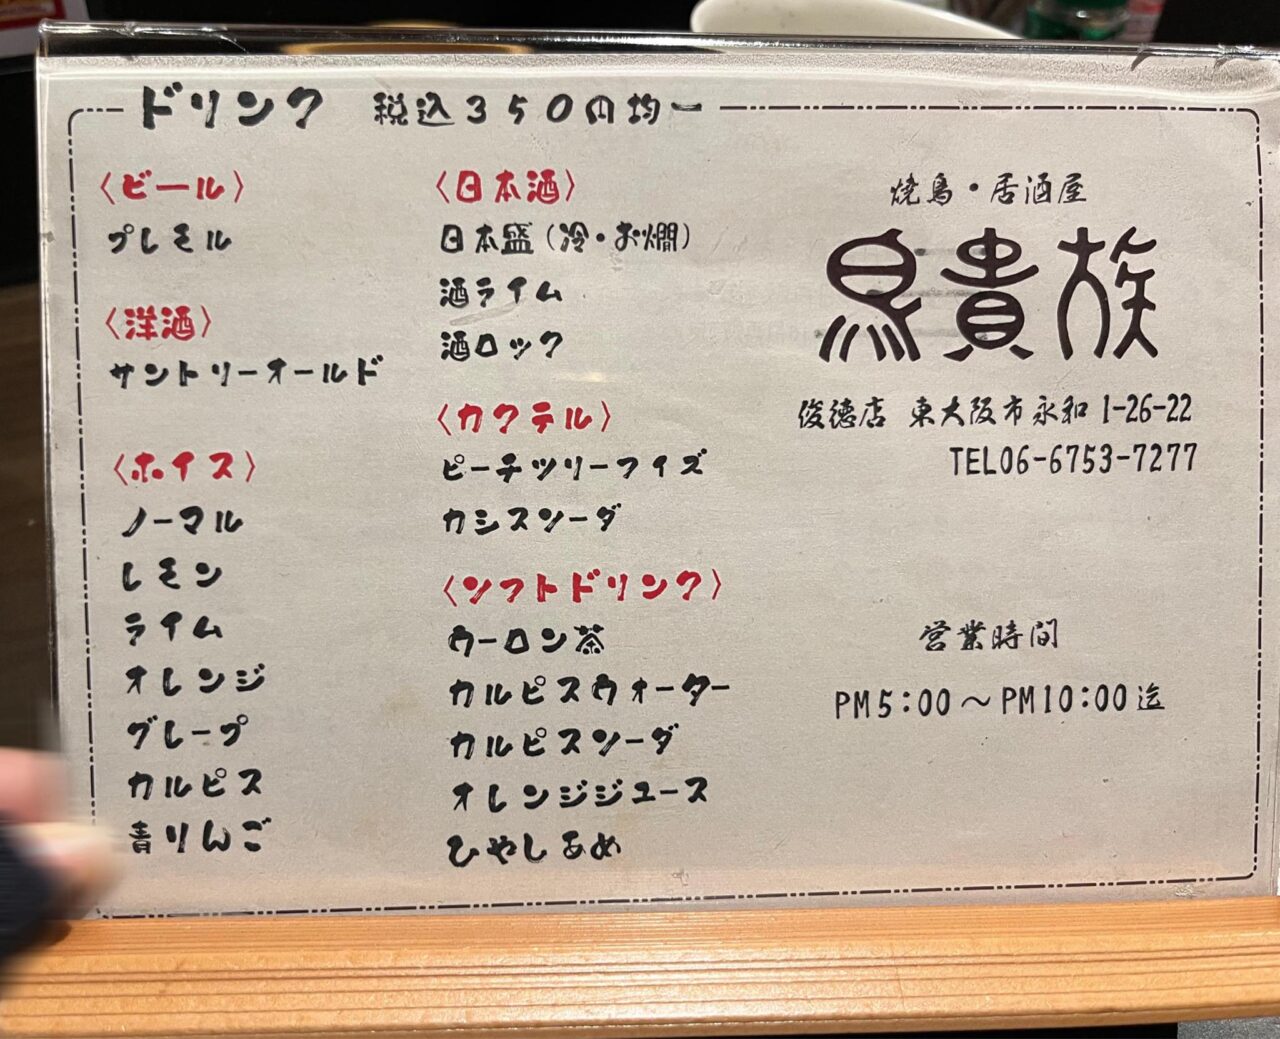 ドリンク 税込350円均一
〈ビール〉
プレモル
〈洋酒〉
サントリーオールド
〈ホイス〉
ノーマル
レモン
ライム
オレンジ
グレープ
カルピス
青りんご
〈日本酒〉
日本盛(冷・お燗)
酒ライム
酒ロック
〈カクテル〉
ピーチツリーフィズ
カシスソーダ
〈ソフトドリンク〉
ウーロン茶
カルピスウォーター
カルピスソーダ
オレンジジュース
ひやしあめ
焼鳥・居酒屋
鳥貴族
俊徳店 東大阪市永和1-26-22
TEL06-6753-7277
営業時間
PM5:00〜PM10:00迄